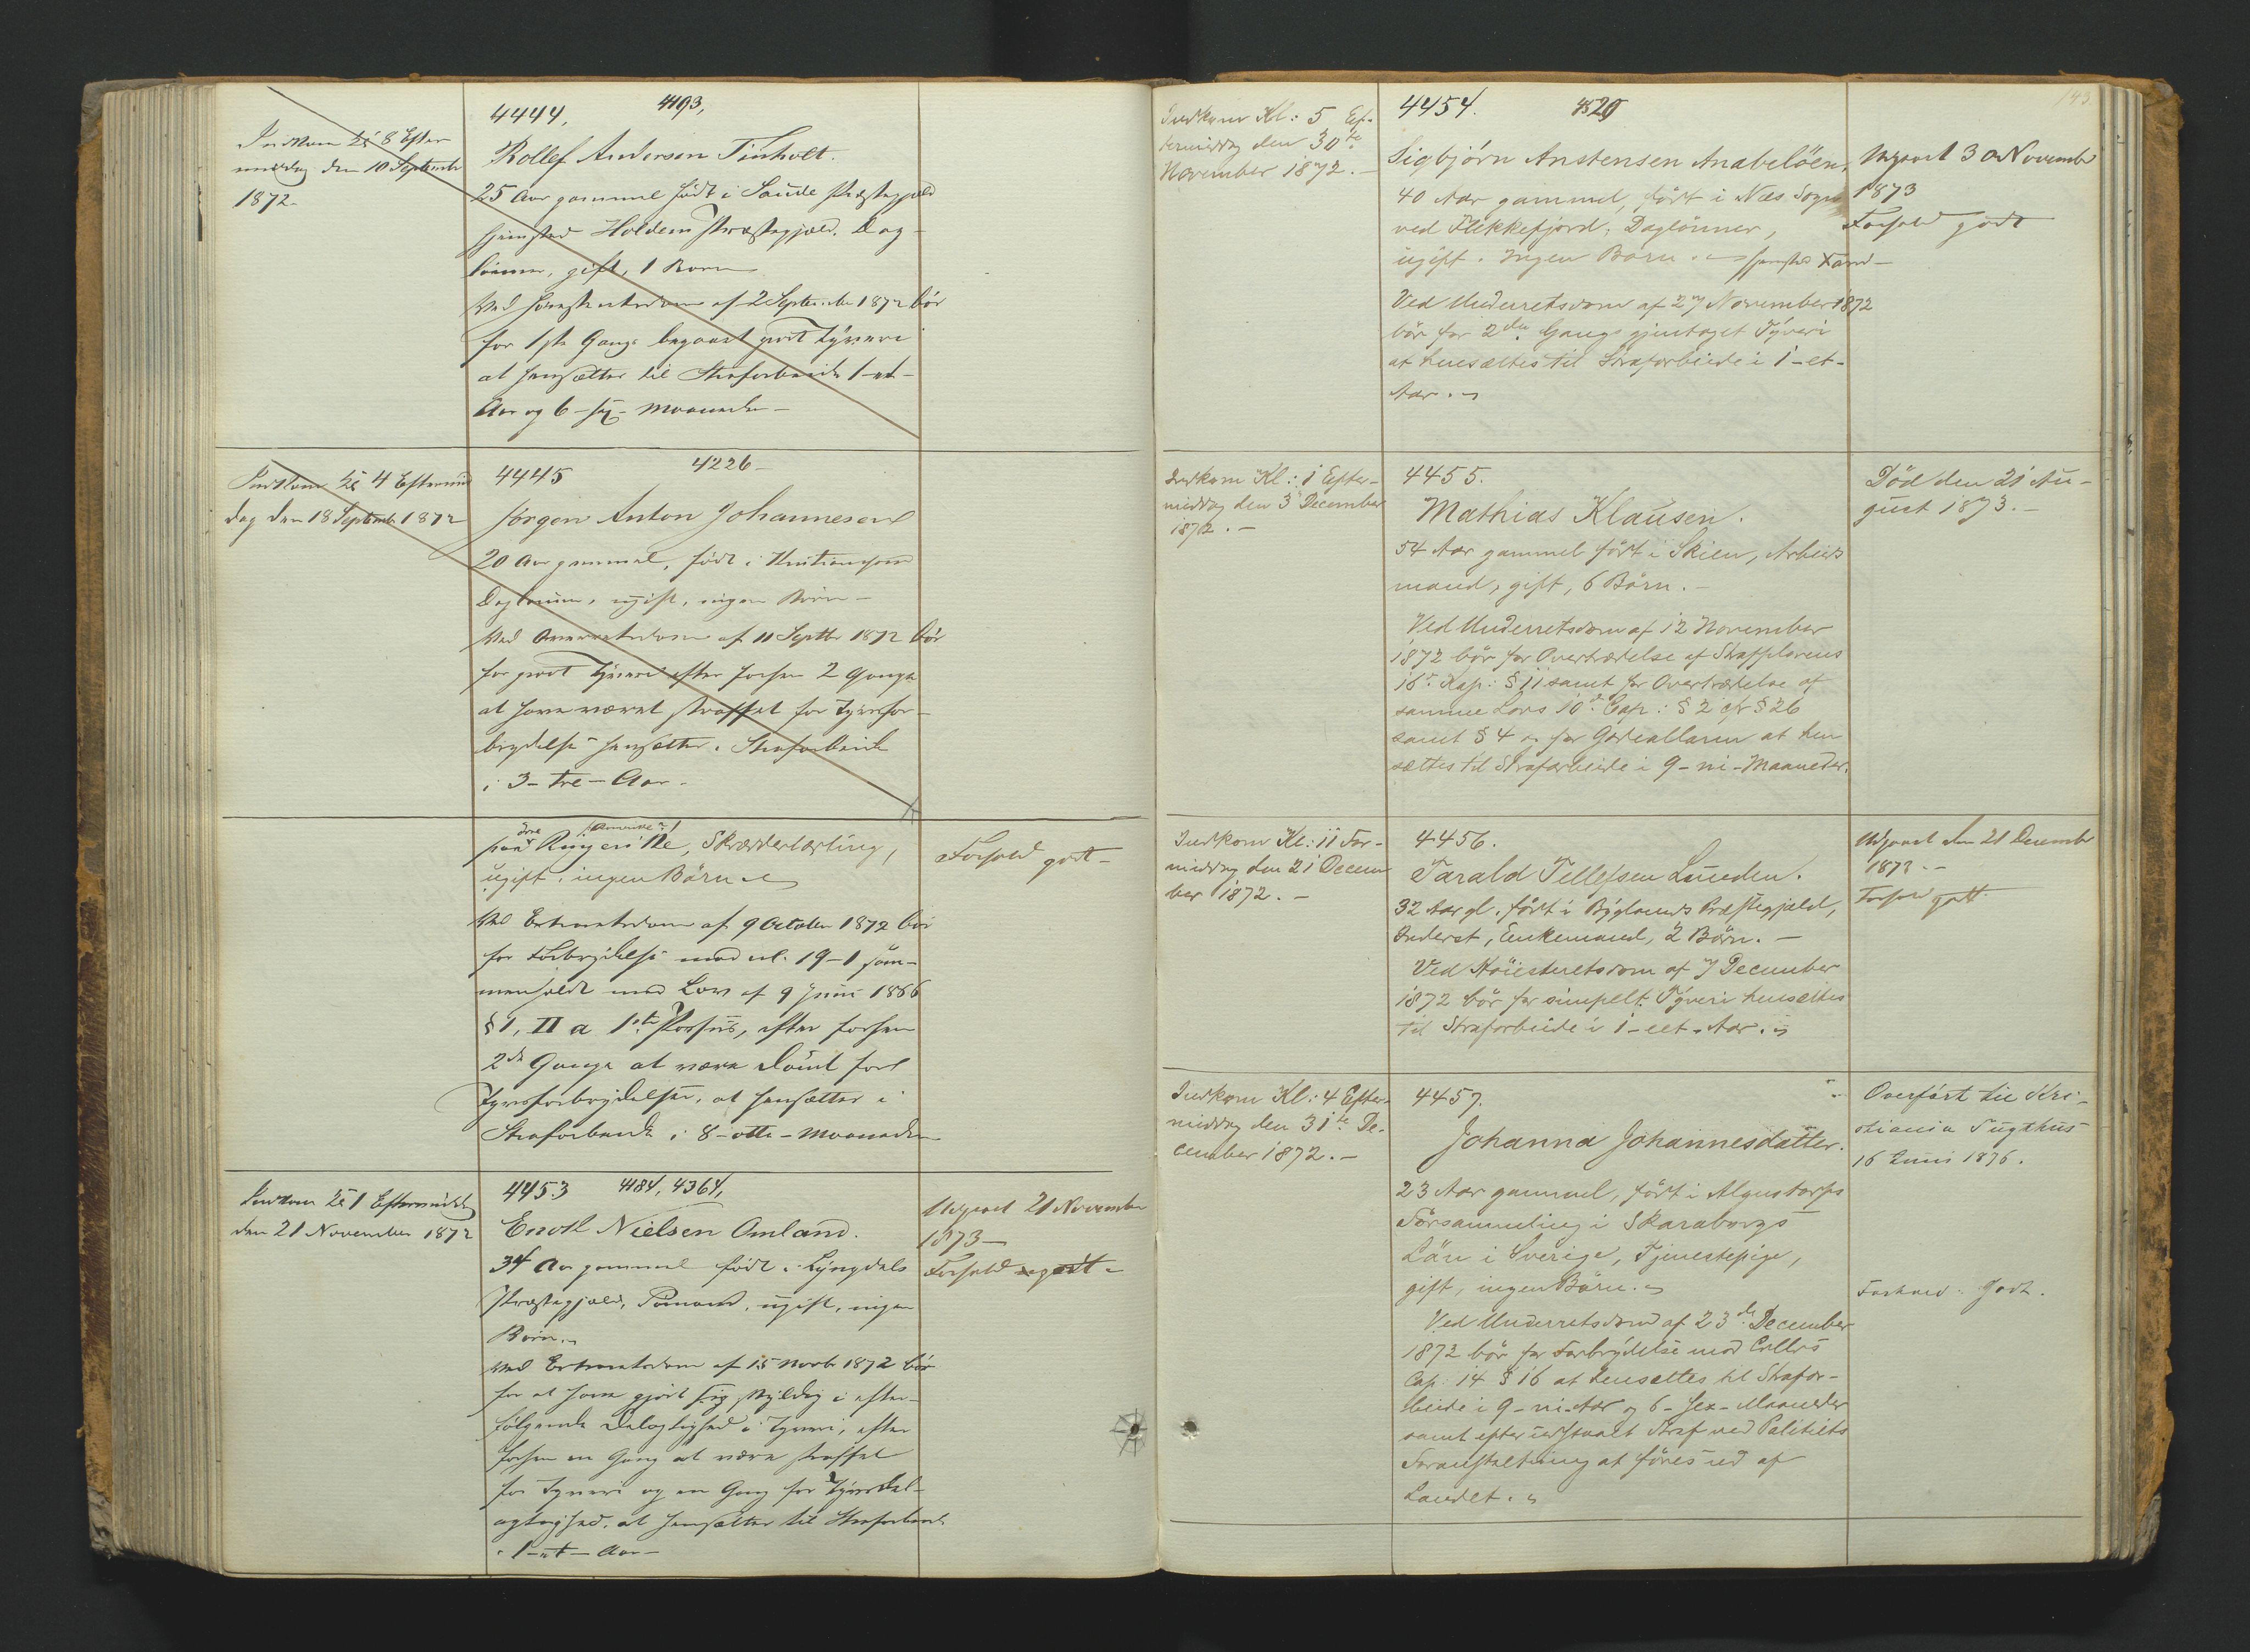 Indkom Kl 8 Efter
middag den 10 September
1872.
4444. 4193,
Rollef Andersen Tinholt.
25 Aar gammel født i Saude Præstegjæld
Hjemsted Holdens Præstegjæld. Dag-
lönner, gift, 1 Barn
Ved Høiesteretsdom af 2 September 1872 bör
for 1ste Gang begaaet grovt Tyveri
at hensættes til Strafarbeide 1-et-
Aar og 6-sex-Maaneder-
Indkom Kl 4 Eftermid
dag den 18 September 1872
4445 4226-
Jørgen Anton Johannesen
20 Aar gammel, födt i Kristianssand
Daglönner, ugift, ingen Börn-
Ved Overretsdom af 11 Septbr 1872 bör
for grovt Tyveri efter forhen 2 Gange
at have været straffet for Tyvsfor-
brydelse hensættes i Strafarbeide
i 3-tre-Aar.
Ringerike, Skrædderlærling,
ugift, ingen Börn
Ved Extraretsdom af 9 October 1872 bör
for Forbrydelse mod cl. 19-1 sam-
menholdt med Lov af 9 Juni 1866
§ 1, II a 1ste Passus, efter forhen
2de Gange at være dömt for
Tyvsforbrydelser, at hensættes i
Strafarbeide i 8-otte-Maaneder
Forhold godt-
Indkom Kl 1 Eftermiddag
den 21 November 1872
4453 4184, 4364,
Enoch Nielsen Omland.
34 Aar gammel födt i Lyngdals
Præstegjæld, Sömand, ugift, ingen
Börn.
Ved Extraretsdom af 15 Novbr 1872 bör
for at have gjort sig skyldig i efter-
følgende Delagtighed i Tyveri, efter
forhen en Gang at være straffet
for Tyveri og en Gang for Tyvsdel-
agtighed, at hensættes til Strafarbeide
i 1-et-Aar-
Udgaaet 21 November
1873-
Forhold godt-
143
Indkom Kl: 5 Ef-
termiddag den 30te
November 1872.-
4454. 4520
Sigbjörn Anstensen Anabelöen,
40 Aar gammel, født i Næs Sogn
ved Flekkefjord, Daglönner,
ugift. Ingen Börn. Hjemsted
Ved Underretsdom af 27 November 1872
bör for 2den Gang gjentaget Tyveri
at hensættes til Strafarbeide i 1-et-
Aar.
Udgaaet 30 November
1873
Forhold godt
Indkom Kl: 1 Efter-
middag den 3 December
1872.-
4455.
Mathias Klausen.
54 Aar gammel født i Skien, Arbeids
mand, gift, 6 Börn.-
Ved Underretsdom af 12 November
1872 bör for Overtrædelse af Straffelovens
16de Kap: § 11 samt for Overtrædelse af
samme Lovs 10de Cap: § 2 cfr § 26
samt § 4 og for at hen
sættes til Strafarbeide i 9-ni-Maaneder.
Död den 21 Au-
gust 1873.-
Indkom Kl: 11 For-
middag den 21 Decem
ber 1872.-
4456.
Tarald Tellefsen Lunden.
32 Aar gl. født i Byglands Præstegjæld,
Inderst, Enkemand, 2 Börn.-
Ved Höiesteretsdom af 7 December
1872 bör for simpelt Tyveri hensættes
til Strafarbeide i 1-eet-Aar.
Udgaaet den 21 December
1873.-
Forhold godt.
Indkom Kl: 4 Efter-
middag den 31te De-
cember 1872.-
4457.
Johanna Johannesdatter.
23 Aar gammel, født i Algustorps
Församnling i Skaraborgs
Län i Sverige, Tjenestepige,
gift, ingen Börn.
Ved Underretsdom af 23de December
1872 bör for Forbrydelse mod Crllvs
Cap: 14 § 16 at hensættes til Strafar-
beide i 9-ni-Aar og 6-sex-Maaneder
samt efter udstaaet Straf ved Politiets
Foranstaltning at föres ud af
Landet.
Overført til Kri-
stiania Tugthus
16 Juni 1876.
Forhold: Godt.